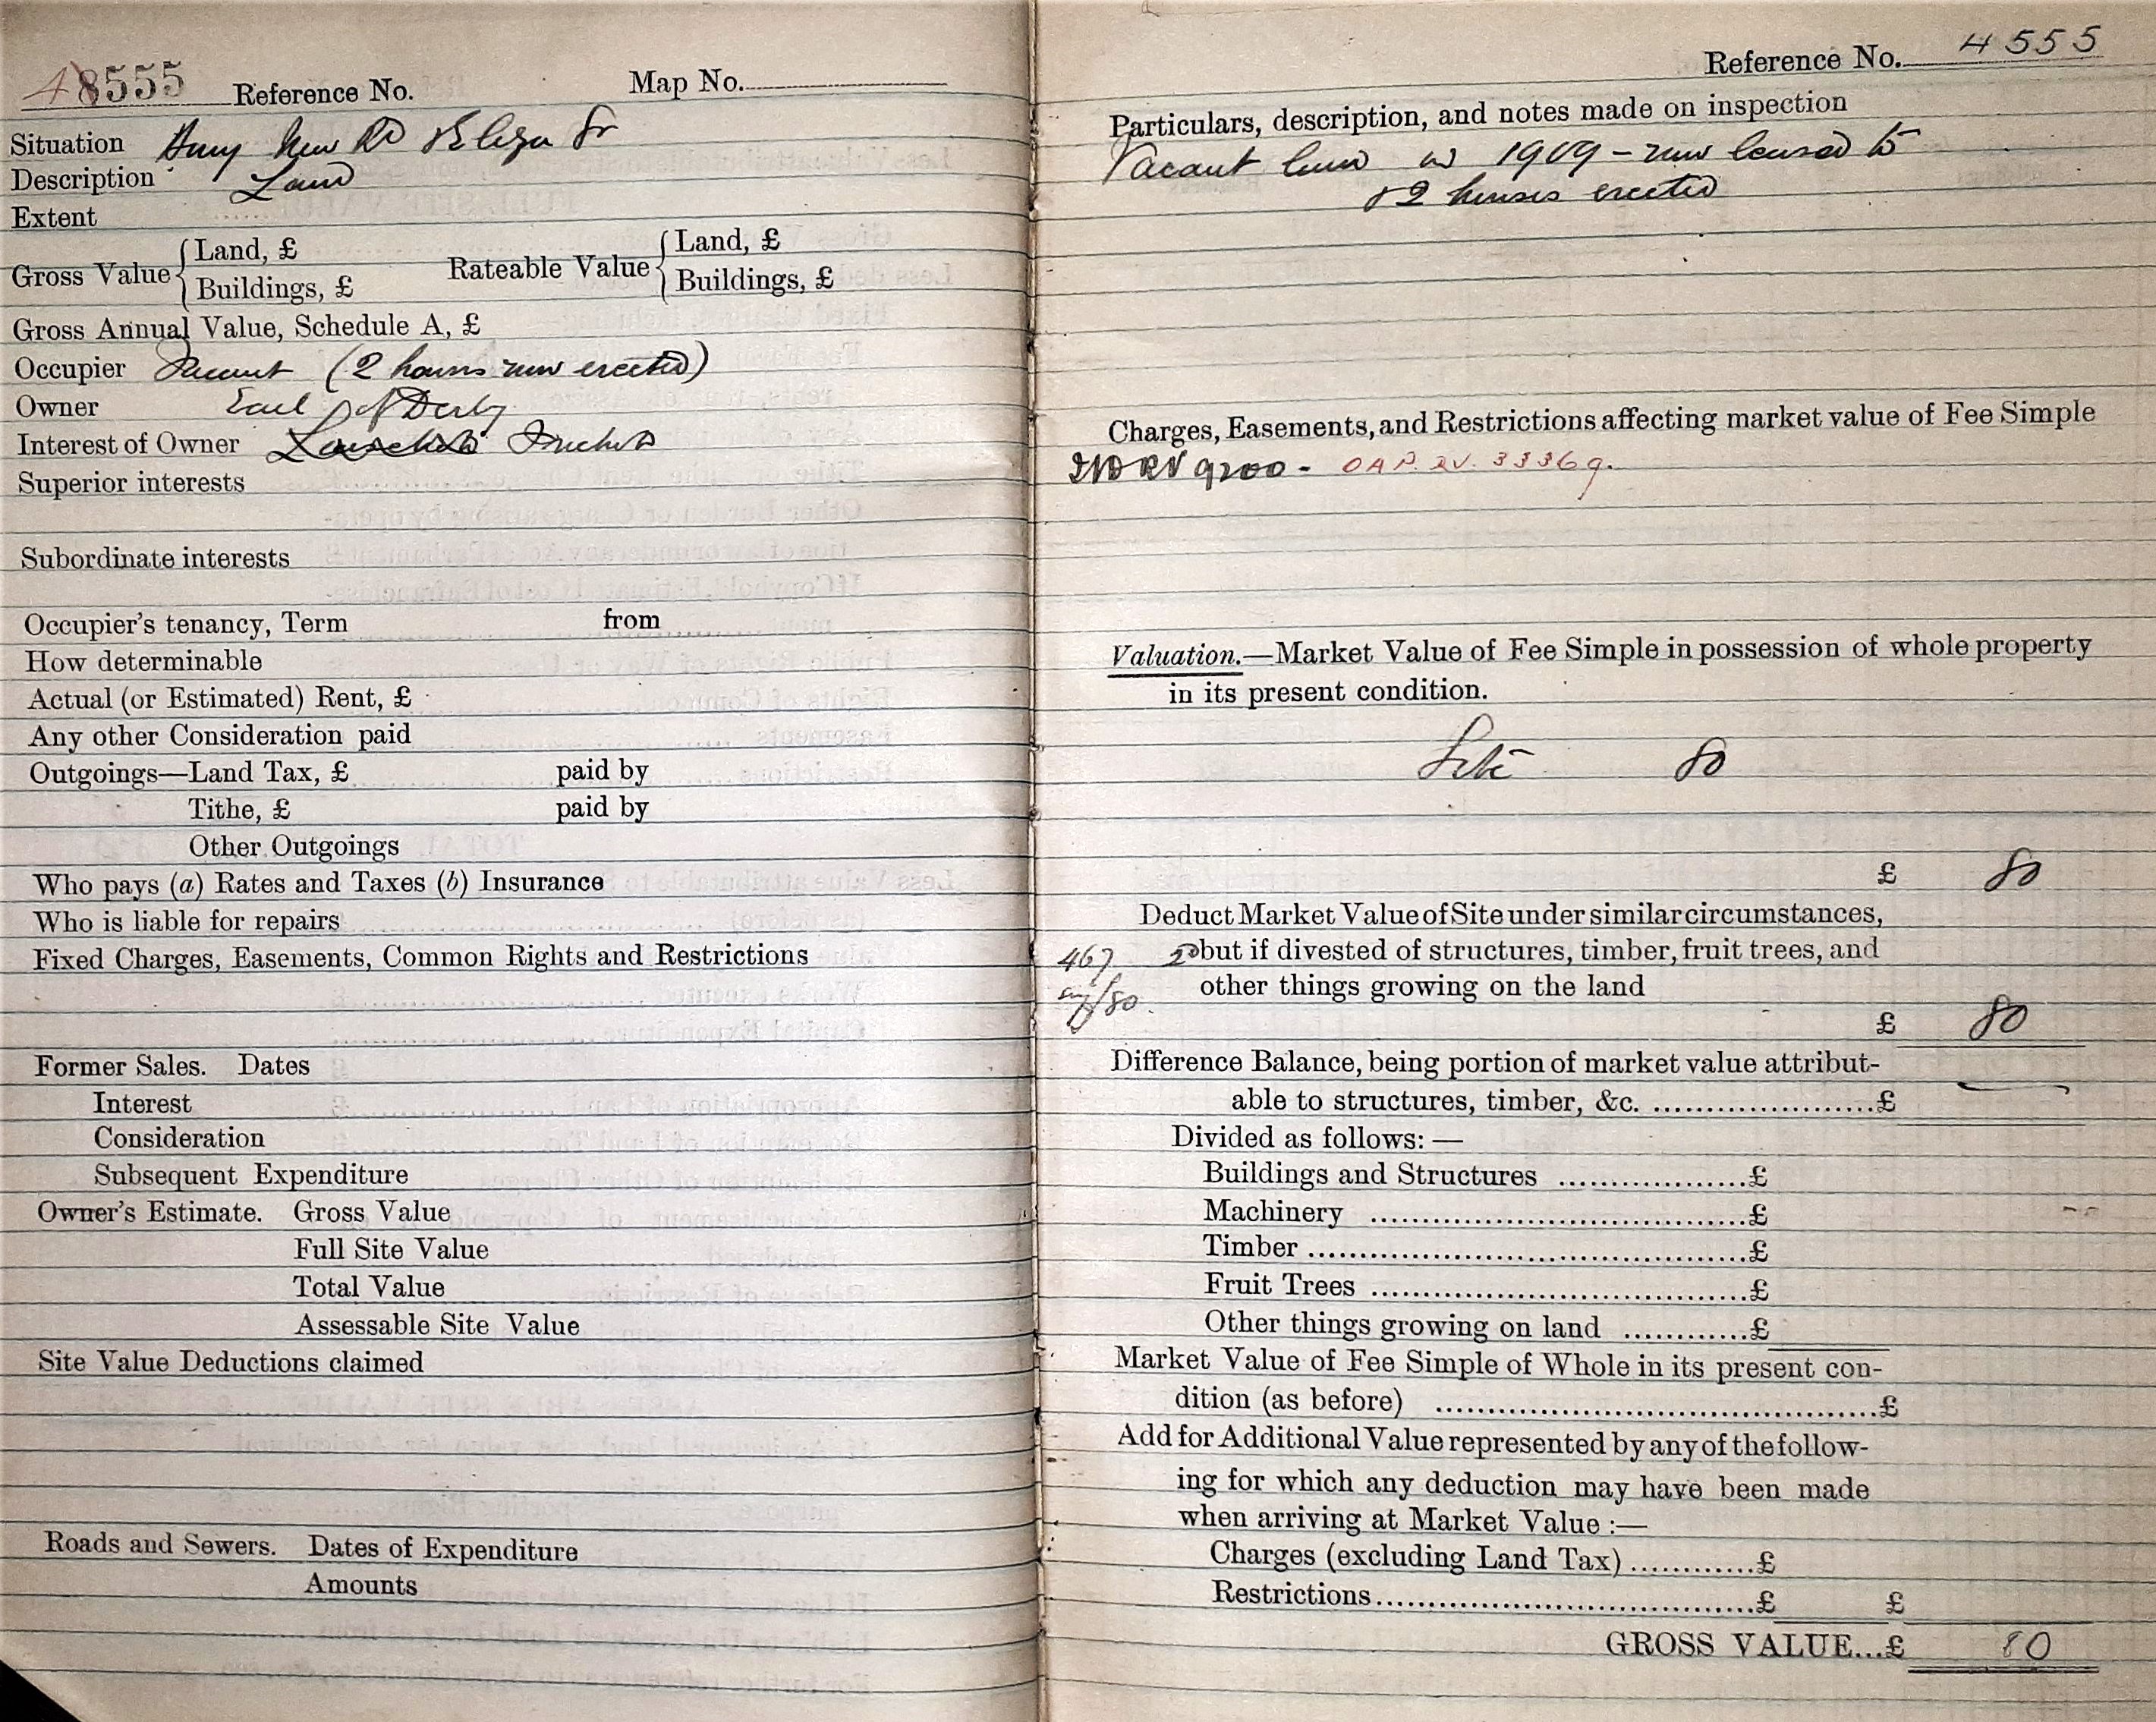 48555 Reference No. Map No.
Situation New Rd & Eliza St
Description Land
Extent
Gross Value { Land, £ Rateable Value { Land, £
Buildings, £ Buildings, £
Gross Annual Value, Schedule A, £
Occupier Vacant (2 houses now erected)
Owner Earl of Derby
Interest of Owner Leasehold Freehold
Superior interests
Subordinate interests
Occupier's tenancy, Term from
How determinable
Actual (or Estimated) Rent, £
Any other Consideration paid
Outgoings—Land Tax, £ paid by
Tithe, £ paid by
Other Outgoings
Who pays (a) Rates and Taxes (b) Insurance
Who is liable for repairs
Fixed Charges, Easements, Common Rights and Restrictions
Former Sales. Dates
Interest
Consideration
Subsequent Expenditure
Owner's Estimate. Gross Value
Full Site Value
Total Value
Assessable Site Value
Site Value Deductions claimed
Roads and Sewers. Dates of Expenditure
Amounts
Reference No. 4555
Particulars, description, and notes made on inspection
Vacant land in 1909 - now leased to
& 2 houses erected
Charges, Easements, and Restrictions affecting market value of Fee Simple
RV 9200 - OAP. RV. 33369.
Valuation.—Market Value of Fee Simple in possession of whole property
in its present condition.
Site 80
£ 80
Deduct Market Value of Site under similar circumstances,
467 but if divested of structures, timber, fruit trees, and
/80. other things growing on the land
£ 80
Difference Balance, being portion of market value attribut-
able to structures, timber, &c. ........................£
Divided as follows: —
Buildings and Structures ....................£
Machinery ........................................£
Timber ..............................................£
Fruit Trees ........................................£
Other things growing on land ............£
Market Value of Fee Simple of Whole in its present con-
dition (as before) ..............................................£
Add for Additional Value represented by any of the follow-
ing for which any deduction may have been made
when arriving at Market Value :—
Charges (excluding Land Tax) ............£
Restrictions.......................................£ £
GROSS VALUE...£ 80